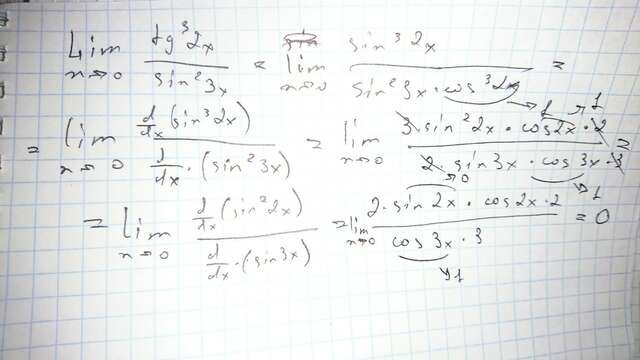 Lim x→0 tg³2x / sin²3x = lim x→0 sin³2x / sin²3x · cos³2x =
→ 1
= lim x→0 d/dx (sin³2x) / d/dx · (sin²3x) = lim x→0 3 · sin²2x · cos2x · 2 / 2 · sin3x · cos3x · 3 =
→ 1 → 0 → 1
= lim x→0 d/dx (sin²2x) / d/dx · (sin3x) = lim x→0 2 · sin2x · cos2x · 2 / cos3x · 3 = 0
→ 1